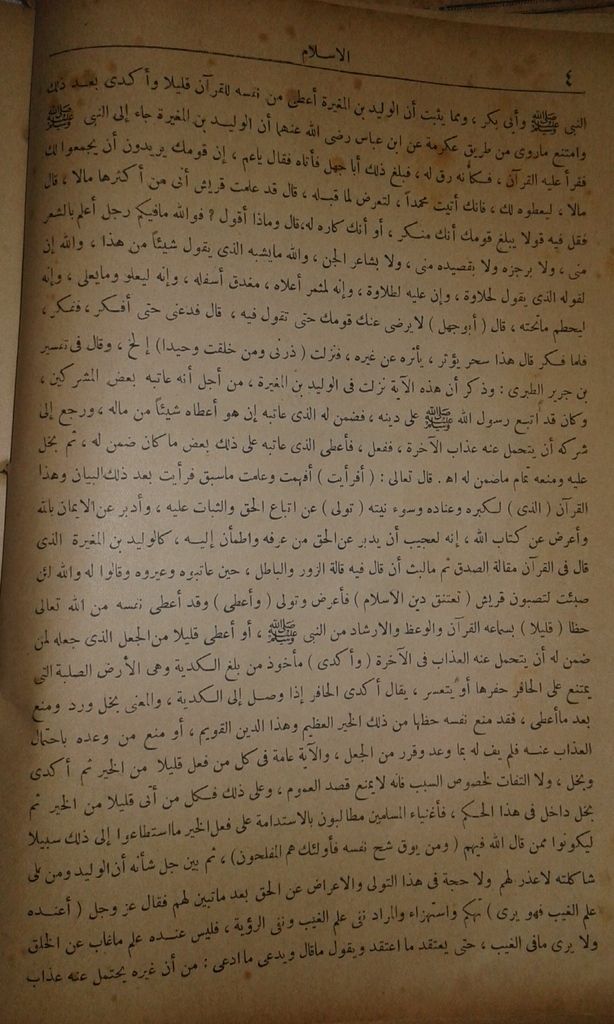 ٤
الاسلام
النبي ﷺ وأبي بكر ، ومما يثبت أن الوليد بن المغيرة أعطى من نفسه للقرآن قليلا وأكدى بعد ذلك
وامتنع ماروى من طريق عكرمة عن ابن عباس رضى الله عنهما أن الوليد بن المغيرة جاء إلى النبي ﷺ
فقرأ عليه القرآن ، فكأنه رق له ، فبلغ ذلك أبا جهل فأتاه فقال ياعم ، إن قومك يريدون أن يجمعوا لك
مالا ، ليعطوه لك ، فانك أتيت محمداً ، لتعرض لما قبله ، قال قد علمت قريش أنى من أكثرها مالا ، قال
فقل فيه قولا يبلغ قومك أنك منكر ، أو أنك كاره له،قال وماذا أقول ؟ فوالله مافيكم رجل أعلم بالشعر
منى ، ولا برجزه ولا بقصيده منى ، ولا بشاعر الجن ، والله مايشبه الذى يقول شيئاً من هذا ، والله إن
لقوله الذى يقول لحلاوة ، وإن عليه لطلاوة ، وإنه لمثمر أعلاه ، مغدق أسفله ، وإنه ليعلو ومايعلى ، وإنه
ليحطم ماتحته ، قال ( أبو جهل ) لايرضى عنك قومك حتى تقول فيه ، قال فدعنى حتى أفكر ، ففكر ،
فلما فكر قال هذا سحر يؤثر ، يأثره عن غيره ، فنزلت ( ذرنى ومن خلقت وحيدا ) إلخ ، وقال فى تفسير
بن جرير الطبرى : وذكر أن هذه الآية نزلت فى الوليد بن المغيرة ، من أجل أنه عاتبه بعض المشركين ،
وكان قد اتبع رسول الله ﷺ على دينه ، فضمن له الذى عاتبه إن هو أعطاه شيئاً من ماله ، ورجع إلى
شركه أن يتحمل عنه عذاب الآخرة ، ففعل ، فأعطى الذى عاتبه على ذلك بعض ماكان ضمن له ، ثم بخل
عليه ومنعه تمام ماضمن له اه . قال تعالى : ( أفرأيت ) أفهمت وعلمت ماسبق فرأيت بعد ذلك البيان وهذا
القرآن ( الذى ) لكبره وعناده وسوء نيته ( تولى ) عن اتباع الحق والثبات عليه ، وأدبر عن الايمان بالله
وأعرض عن كتاب الله ، إنه لعجيب أن يدبر عن الحق من عرفه واطمأن إليه ، كالوليد بن المغيرة الذى
قال فى القرآن مقالة الصدق ثم مالبث أن قال فيه قالة الزور والباطل ، حين عاتبوه وعيروه وقالوا له والله لئن
صبئت لتصبون قريش ( تعتنق دين الاسلام ) فأعرض وتولى ( وأعطى ) وقد أعطى نفسه من الله تعالى
حظا ( قليلا ) بسماعه القرآن والوعظ والارشاد من النبي ﷺ ، أو أعطى قليلا من الجعل الذى جعله لمن
ضمن له أن يتحمل عنه العذاب فى الآخرة ( وأكدى ) مأخوذ من بلغ الكدية وهى الأرض الصلبة التى
يمتنع على الحافر حفرها أو يتعسر ، يقال أكدى الحافر إذا وصل إلى الكدية ، والمعنى بخل ورد ومنع
بعد ماأعطى ، فقد منع نفسه حظها من ذلك الخير العظيم وهذا الدين القويم ، أو منع من وعده باحتمال
العذاب عنه فلم يف له بما وعد وقرر من الجعل ، والآية عامة فى كل من فعل قليلا من الخير ثم أكدى
وبخل ، ولا التفات لخصوص السبب فانه لايمنع قصد العموم ، وعلى ذلك فكل من أتى قليلا من الخير ثم
بخل داخل فى هذا الحكم ، فأغنياء المسلمين مطالبون بالاستدامة على فعل الخير مااستطاعوا إلى ذلك سبيلا
ليكونوا ممن قال الله فيهم ( ومن يوق شح نفسه فأولئك هم المفلحون) ، ثم بين جل شأنه أن الوليد ومن على
شاكلته لاعذر لهم ولا حجة فى هذا التولى والاعراض عن الحق بعد ماتبين لهم فقال عز وجل ( أعنده
علم الغيب فهو يرى ) تهكم واستهزاء والمراد نفى علم الغيب ونفى الرؤية ، فليس عنده علم ماغاب عن الخلق
ولا يرى مافى الغيب ، حتى يعتقد ما اعتقد ويقول ماقال ويدعى ماادعى : من أن غيره يحتمل عنه عذاب